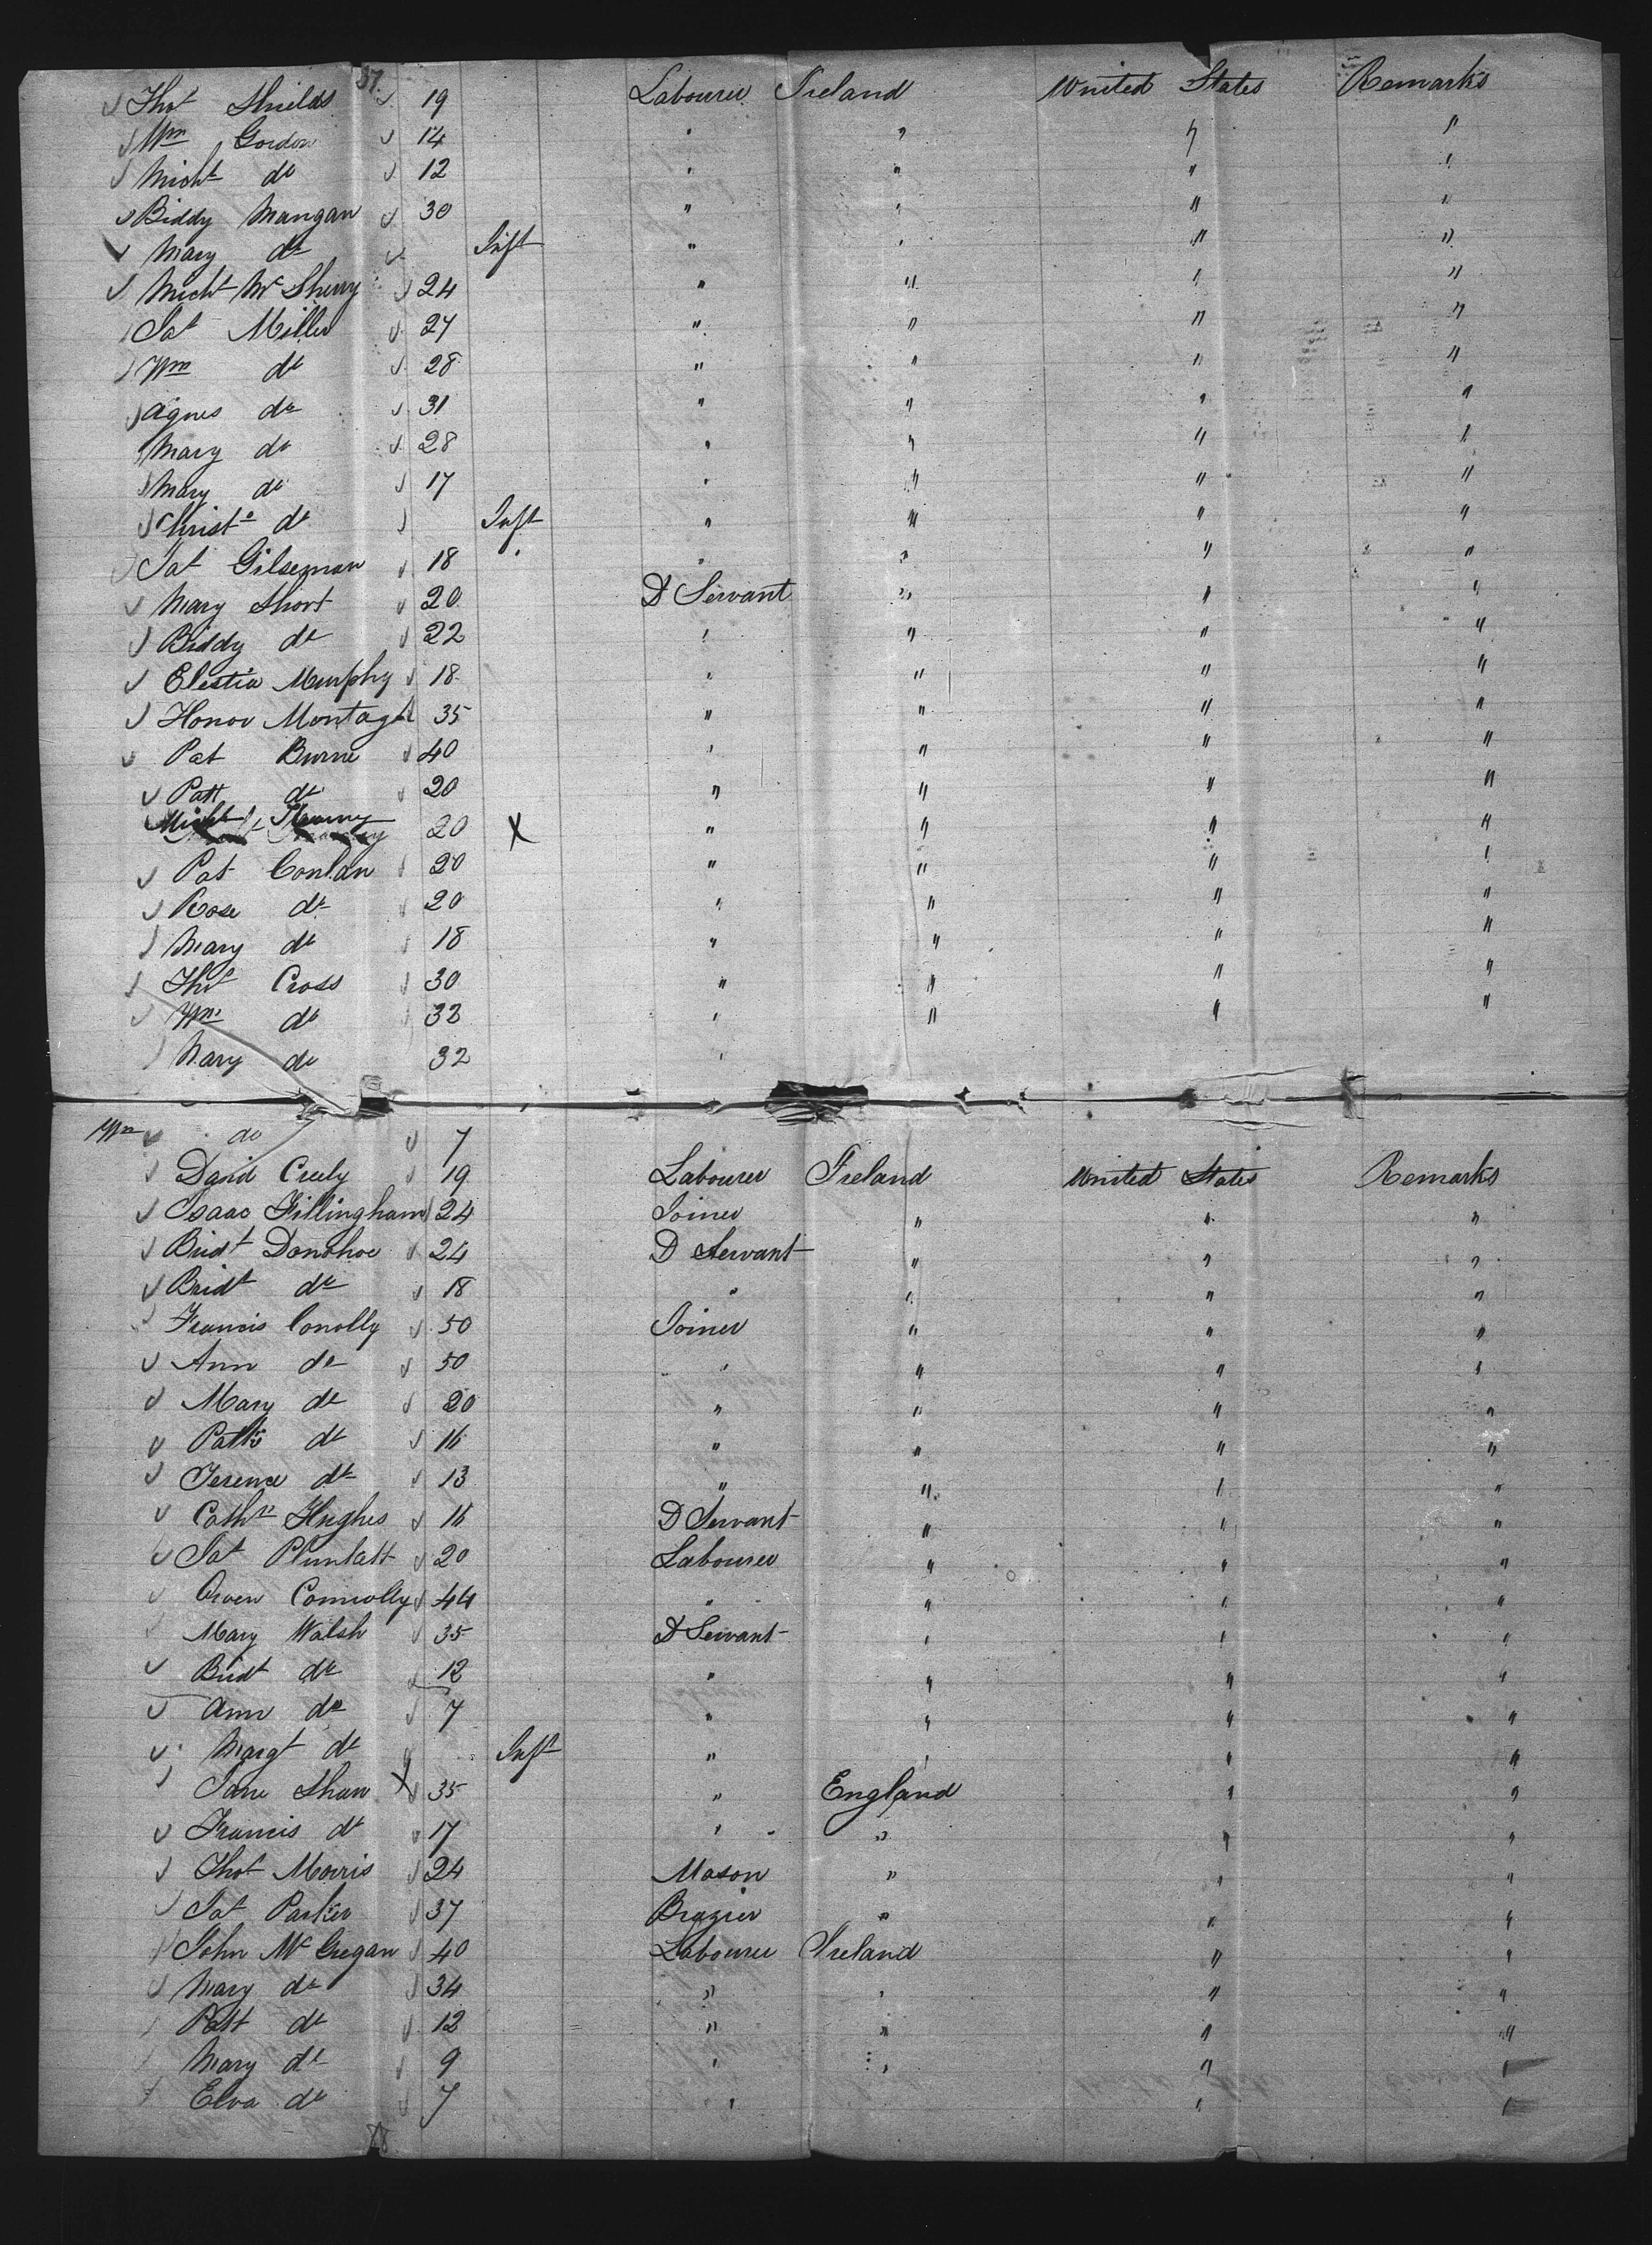 37.
Thos Shields 19 Labourer Ireland United States Remarks
Wm Gordon 14 " " " "
Michl do 12 " " " "
Biddy Mangan 30 " " " "
Mary do Inft " " " "
Michl McSherry 24 " " " "
Jas Miller 27 " " " "
Wm do 28 " " " "
Agnes do 31 " " " "
Mary do 28 " " " "
Mary do 17 " " " "
Christr do Inft " " " "
Jas Gilseman 18 " " " "
Mary Short 20 D Servant " " "
Biddy do 22 " " " "
Elestia Murphy 18 " " " "
Honor Montagh 35 " " " "
Pat Burne 40 " " " "
Patt do 20 " " " "
Michl 20 X " " " "
Pat Conlan 20 " " " "
Rose do 20 " " " "
Mary do 18 " " " "
Thos Cross 30 " " " "
Wm do 32 " " " "
Mary do 32 "
Wm do 7
David Creely 19 Labourer Ireland United States Remarks
Isaac Fillingham 24 Joiner " " "
Bridt Donohoe 24 D Servant " " "
Bridt do 18 " " " "
Francis Conolly 50 Joiner " " "
Ann do 50 " " " "
Mary do 20 " " " "
Patk do 16 " " " "
Terence do 13 " " " "
Cathn Hughes 16 D Servant " " "
Jas Plunkatt 20 Labourer " " "
Owen Connolly 44 " " " "
Mary Walsh 35 D Servant " " "
Bridt do 12 " " " "
Ann do 7 " " " "
Margt do Inft " " " "
Jane Shaw X 35 " England " "
Francis do 17 " " " "
Thos Morris 24 Mason " " "
Jas Parker 37 Brazier " " "
John McGregan 40 Labourer Ireland " "
Mary do 34 " " " "
Patt do 12 " " " "
Mary do 9 " " " "
Elva do 7 " " "